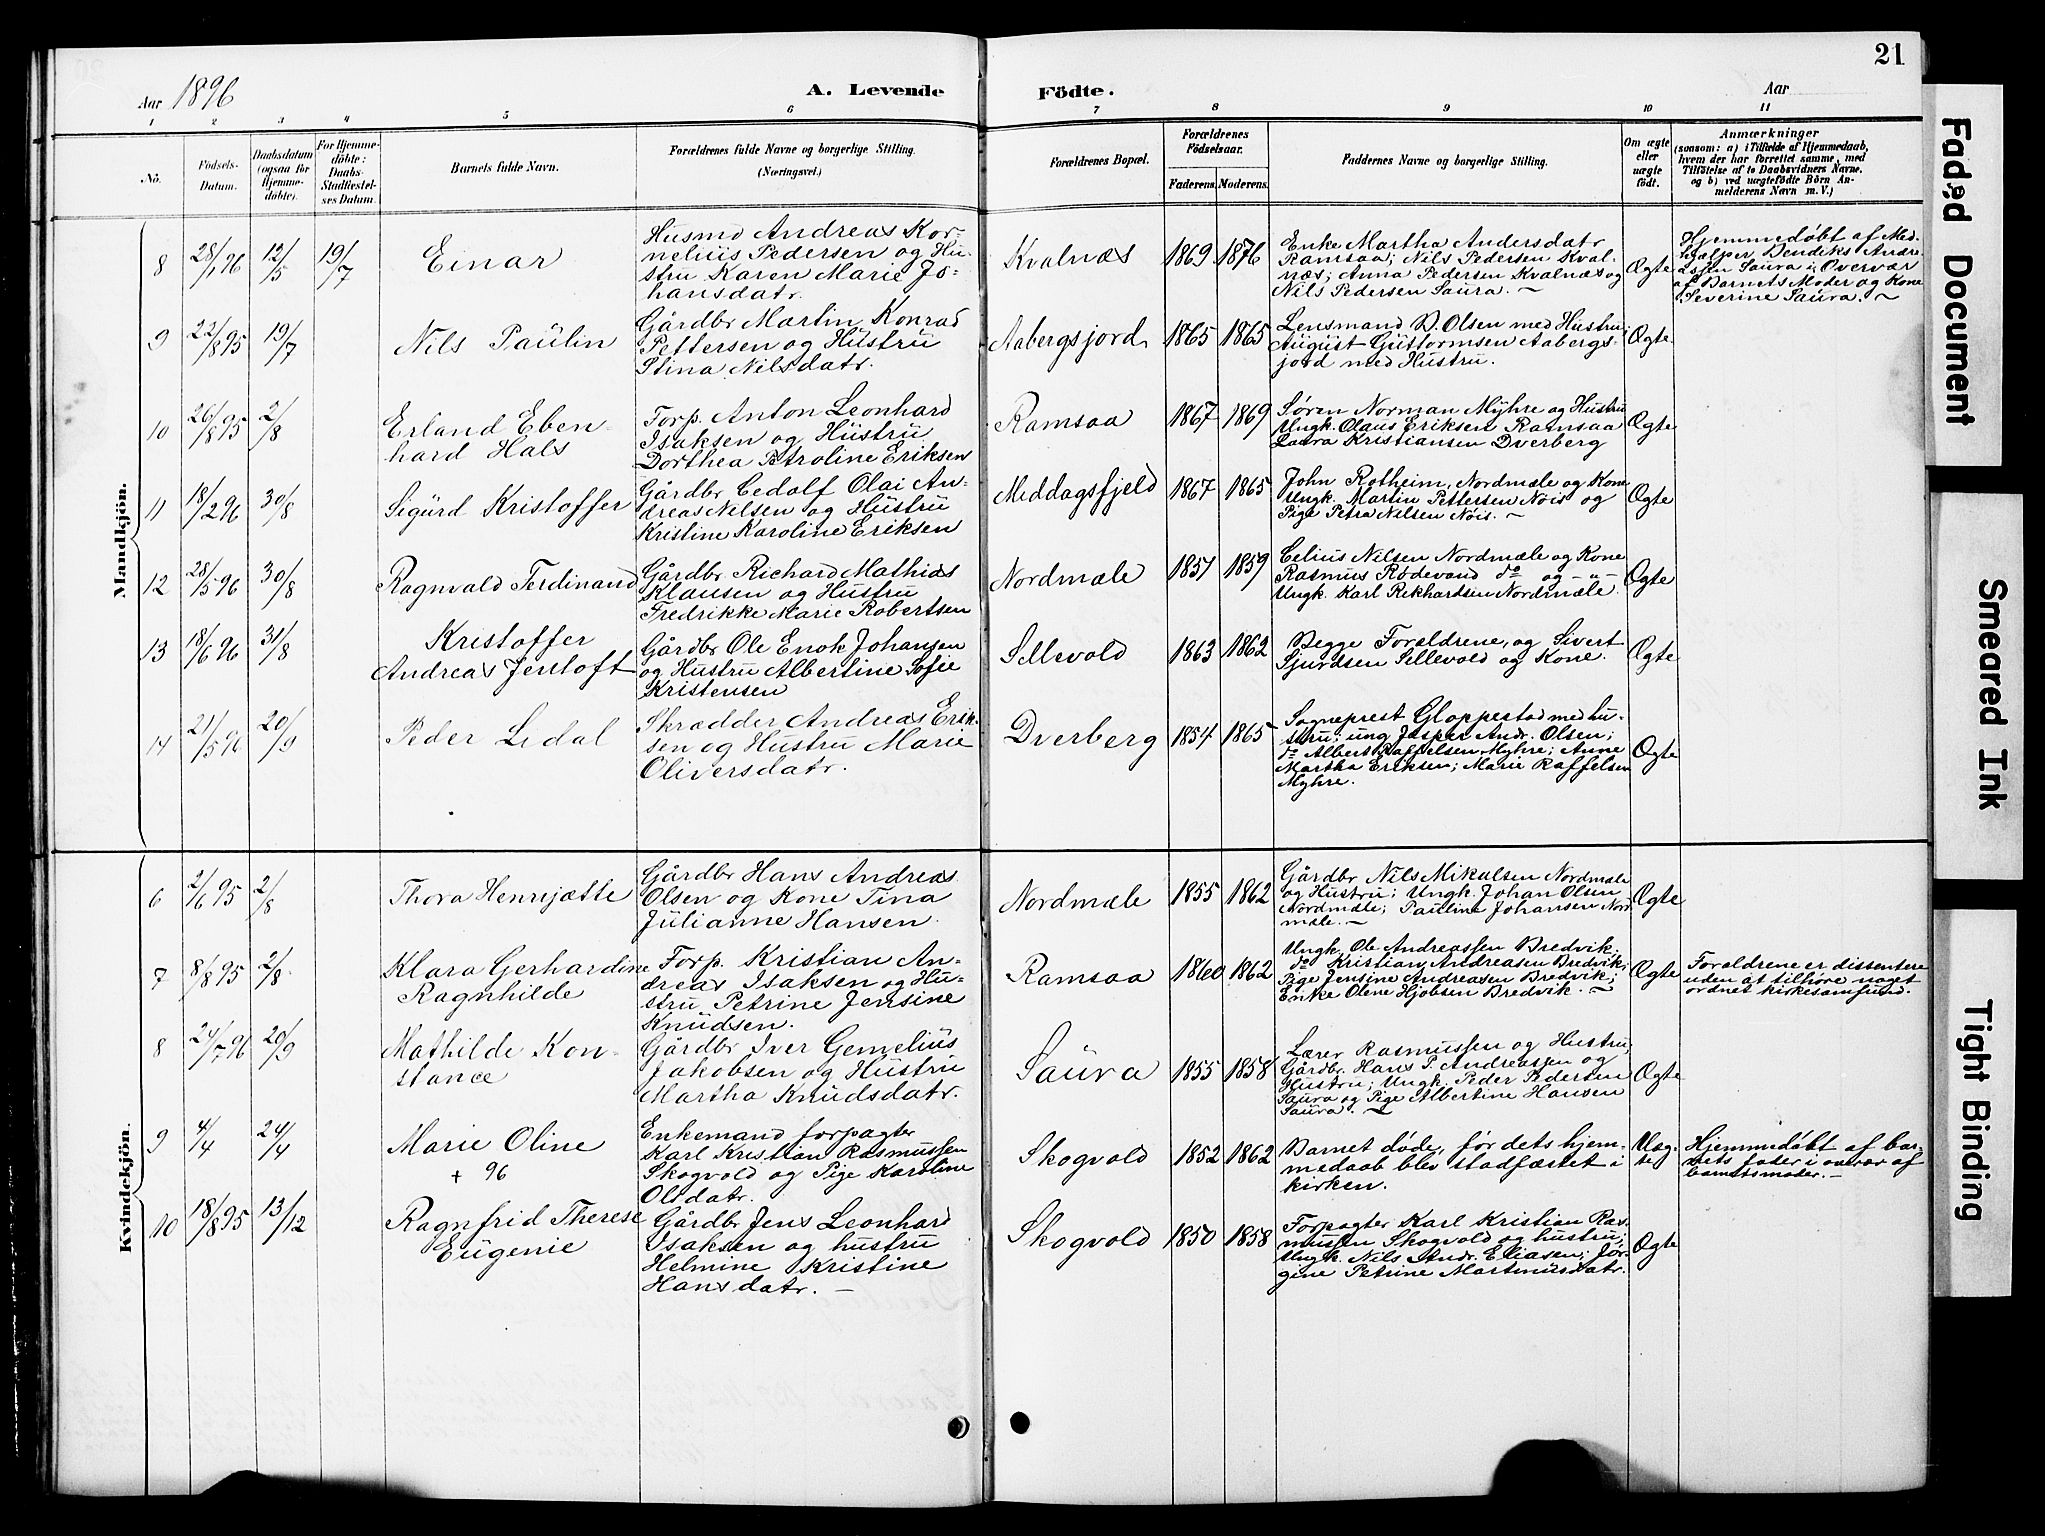 21
Aar 1896
A. Levende Födte.
Aar
1 2 3 4 5 6 7 8 9 10 11
No.
Födsels-Datum.
Daabsdatum (ogsaa for Hjemme-döbte).
For Hjemme-döbte: Daabs-Stadfæstel-ses Datum.
Barnets fulde Navn.
Forældrenes fulde Navne og borgerlige Stilling.
(Næringsvei.)
Forældrenes Bopæl.
Forældrenes Födselsaar.
Faderens. Moderens.
Faddernes Navne og borgerlige Stilling.
Om ægte eller uægte födt.
Anmærkninger
(saasom: a) i Tilfælde af Hjemmedaab,
hvem der har forrettet samme, med
Tilföielse af to Daabsvidners Navne.
og b) ved uægtefödte Börn An-
melderens Navn m. V.)
Mandkjön.
8 28/1 96 12/5 19/7
Einar
Husmd Andreas Kor-
nelius Pedersen og Hu-
stru Karen Marie Jo-
hansdatr.
Kvalnæs 1869 1876
Enke Martha Andersdatr
Ramsaa; Nils Pedersen Kval-
næs; Anna Pedersen Kvalnæs og
Nils Pedersen Saura. ~
Ægte
Hjemmedøbt af Med-
hjælper Bendiks Andre-
assen Saura i Overvær
af Barnets Moder og Kone
Severine Saura. ~
9 22/8 95 19/7
Nils Paulin
Gårdbr Martin Konrad
Pettersen og Hustru
Stina Nilsdatr.
Aabergsjord 1865 1865
Lensmand D. Olsen med Hustru;
August Guttormsen Aabergs-
jord med Hustru.
Ægte
10 26/8 95 2/8
Erland Eben-
hard Hals
Forp. Anton Leonhard
Isaksen og Hustru
Dorthea Petroline Eriksen
Ramsaa 1867 1869
Søren Norman Myhre og Hustru
Ungk. Olaus Eriksen Ramsaa
Laura Kristiansen Dverberg
Ægte
11 18/2 96 30/8
Sigurd Kristoffer
Gårdbr Cedolf Olai An-
dreas Nilsen og Hustru
Kristine Karoline Eriksen
Middagsfjeld 1867 1865
John Rotheim, Nordmæle og Kone
Ungk. Martin Pettersen Nøis og
Pige Petra Nilsen Nøis. ~
Ægte
12 28/5 96 30/8
Ragnvald Ferdinand
Gårdbr. Richard Mathias
Klausen og Hustru
Fredrikke Marie Robertsen
Nordmæle 1857 1859
Celius Nilsen Nordmæle og Kone
Rasmus Rødevand do og -"-
Ungk. Karl Rikhardsen Nordmæle.
Ægte
13 18/6 96 31/8
Kristoffer
Andreas Jentoft
Gårdbr Ole Enok Johansen
og Hustru Albertine Sofie
Kristensen
Sellevold 1863 1862
Begge Forældrene, og Sivert
Sjurdsen Sellevold og Kone.
Ægte
14 21/5 96 20/9
Peder Lidal
Skrædder Andreas Erik-
sen og Hustru Marie
Oliversdatr.
Dverberg 1854 1865
Sogneprest Gloppestad med hu-
stru; ung Jesper Andr. Olsen;
do Albert Raffelsen Myhre; Anne
Martha Eriksen; Marie Raffelsen
Myhre.
Ægte
Kvindekjön.
6 2/6 95 2/8
Thora Henrjætte
Gårdbr Hans Andreas
Olsen og Kone Tina
Julianne Hansen.
Nordmæle 1855 1862
Gårdbr Nils Mikalsen Nordmæle
og Hustru; Ungk. Johan Olsen
Nordmæle; Pauline Johansen Nord-
mæle. ~
Ægte
7 8/8 95 2/8
Klara Gerhardine
Ragnhilde
Forp. Kristian An-
dreas Isaksen og Hu-
stru Petrine Jensine
Knudsen.
Ramsaa 1860 1862
Ungk. Ole Andreassen Bredvik;
do Kristian Andreasen Bredvik;
Pige Jensine Andreasen Bredvik;
Enke Olene Hjobsen Bredvik. ~
Ægte
Forældrene er dissentere
uden at tilhøre noget
ordnet kirkesamfund.
8 24/7 96 20/9
Mathilde Kon-
stance
Gårdbr Iver Gemelius
Jakobsen og Hustru
Martha Knudsdatr.
Saura 1855 1858
Lærer Rasmussen og Hustru;
Gårdbr. Hans P. Andreassen og
Hustru; Ungk. Peder Pedersen
Saura og Pige Albertine Hansen
Saura. ~
Ægte
9 4/4 24/4
Marie Oline
+ 96
Enkemand forpagter
Karl Kristian Rasmussen
Skogvold og Pige Karoline
Olsdatr.
Skogvold 1852 1862
Barnet døde, før dets hjem-
medaab blev stadfæstet i
kirken.
Uæg-
te
Hjemmdøbt af bar-
nets fader i overvær af
barnetsmoder. ~
10 18/8 95 13/12
Ragnfrid Therese
Eugenie
Gårdbr Jens Leonhard
Isaksen og hustru
Helmine Kristine
Hansdatr. ~
Skogvold 1850 1858
Forpagter Karl Kristian Ras-
mussen Skogvold og hustru;
Ungk. Nils Andr. Eliasen; Jør-
gine Petrine Martinusdatr.
Ægte
Faded Document
Smeared Ink
Tight Binding